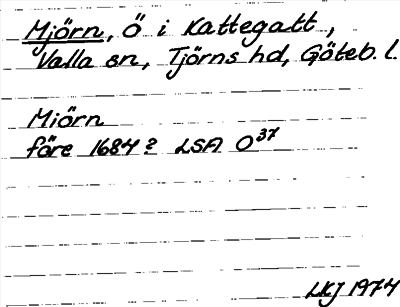 Mjörn, ö i Kattegatt,
Valla sn, Tjörns hd, Göteb. l.
Miörn
före 1684? LSA O37
LKJ 1974